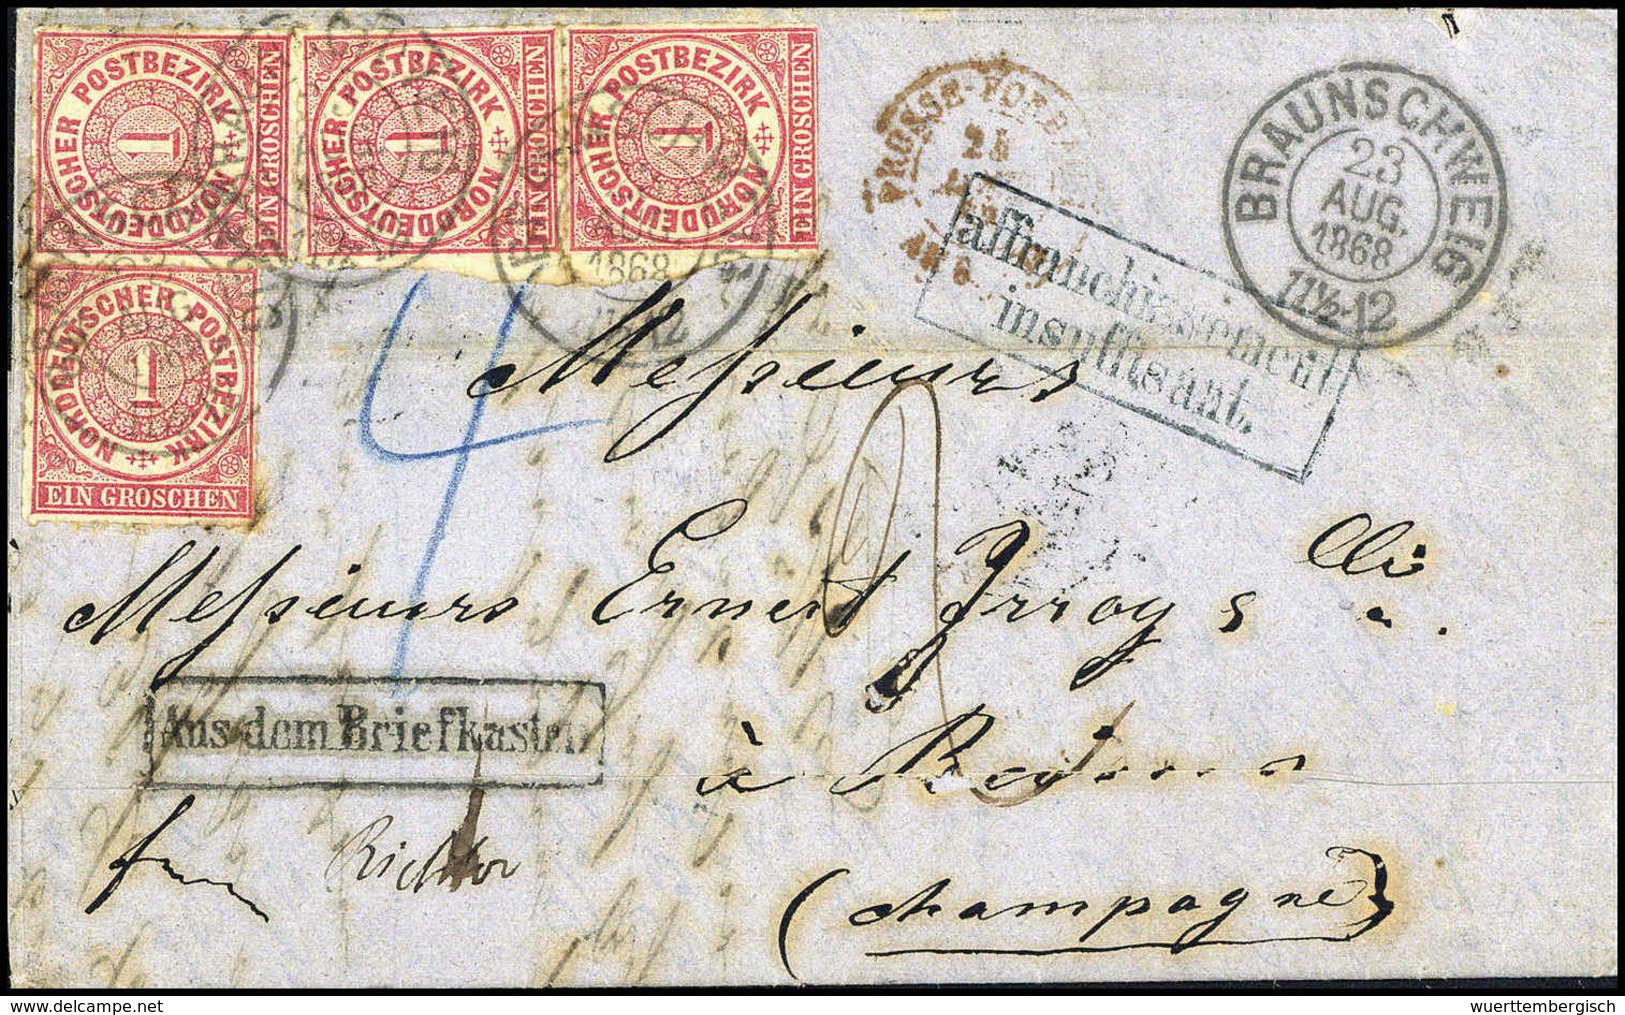 NORDDEUTSCHER POSTBEZIRK
1
EIN GROSCHEN
NORDDEUTSCHER POSTBEZIRK
1
EIN GROSCHEN
NORDDEUTSCHER POSTBEZIRK
1
EIN GROSCHEN
NORDDEUTSCHER POSTBEZIRK
1
EIN GROSCHEN
1868
25
BRAUNSCHWEIG
23
AUG.
1868
11½-12
affranchissement
insuffisant.
4
Messieurs
Messieurs Ernest Irroy &
à Reims
Aus dem Briefkasten
Richter
(Champagne)
wuerttembergisch